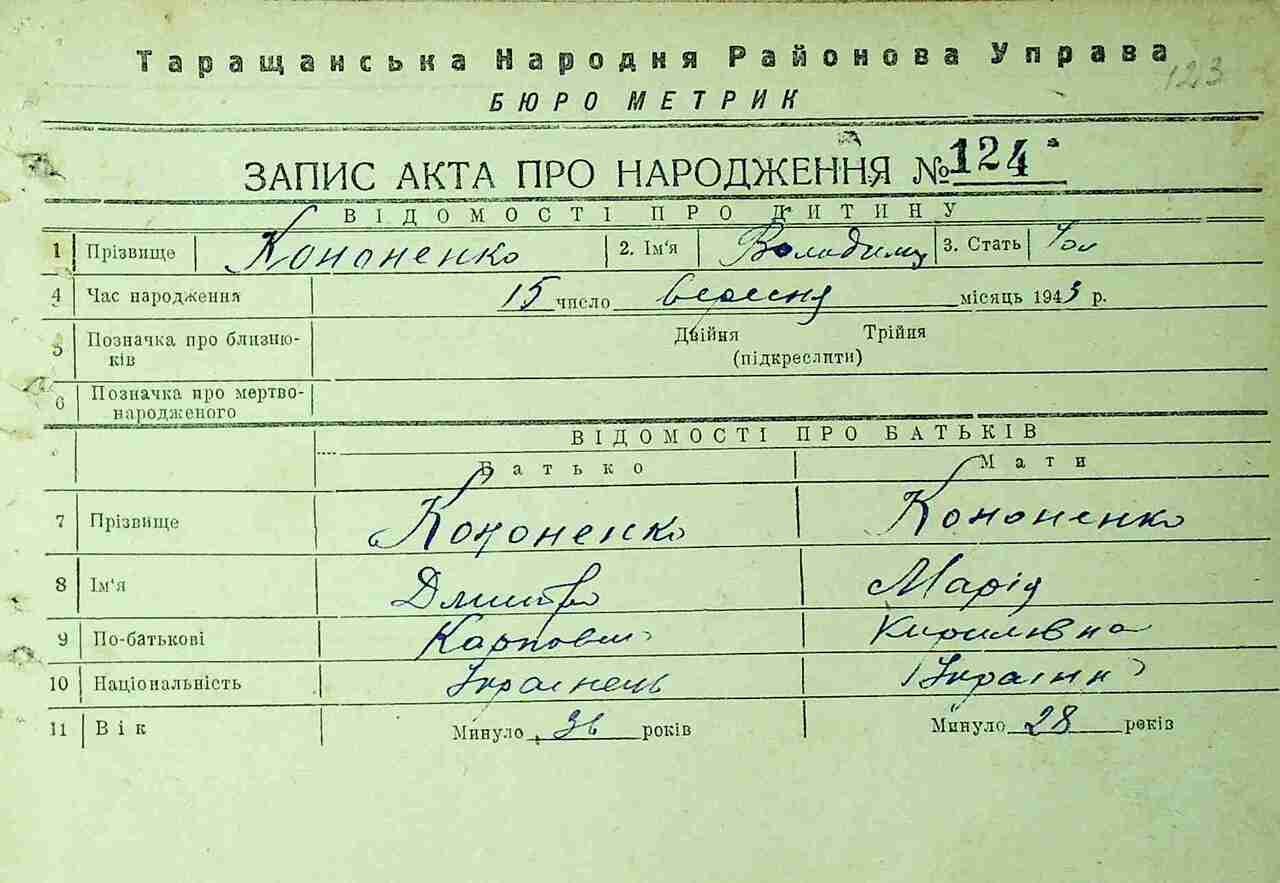 Таращанська Народня Районова Управа
123
БЮРО МЕТРИК
ЗАПИС АКТА ПРО НАРОДЖЕННЯ № 124
ВІДОМОСТІ ПРО ДИТИНУ
1 Прізвище Кононенко 2. Ім'я Володимир 3. Стать Чол
4 Час народження 15 число вересня місяць 1943 р.
5 Позначка про близню- Двійня Трійня
ків (підкреслити)
6 Позначка про мертво-
народженого
ВІДОМОСТІ ПРО БАТЬКІВ
Батько Мати
7 Прізвище Кононенко Кононенко
8 Ім'я Дмитро Марія
9 По-батькові Карпович Кирилівна
10 Національність Українець Українк
11 Вік Минуло 36 років Минуло 28 років